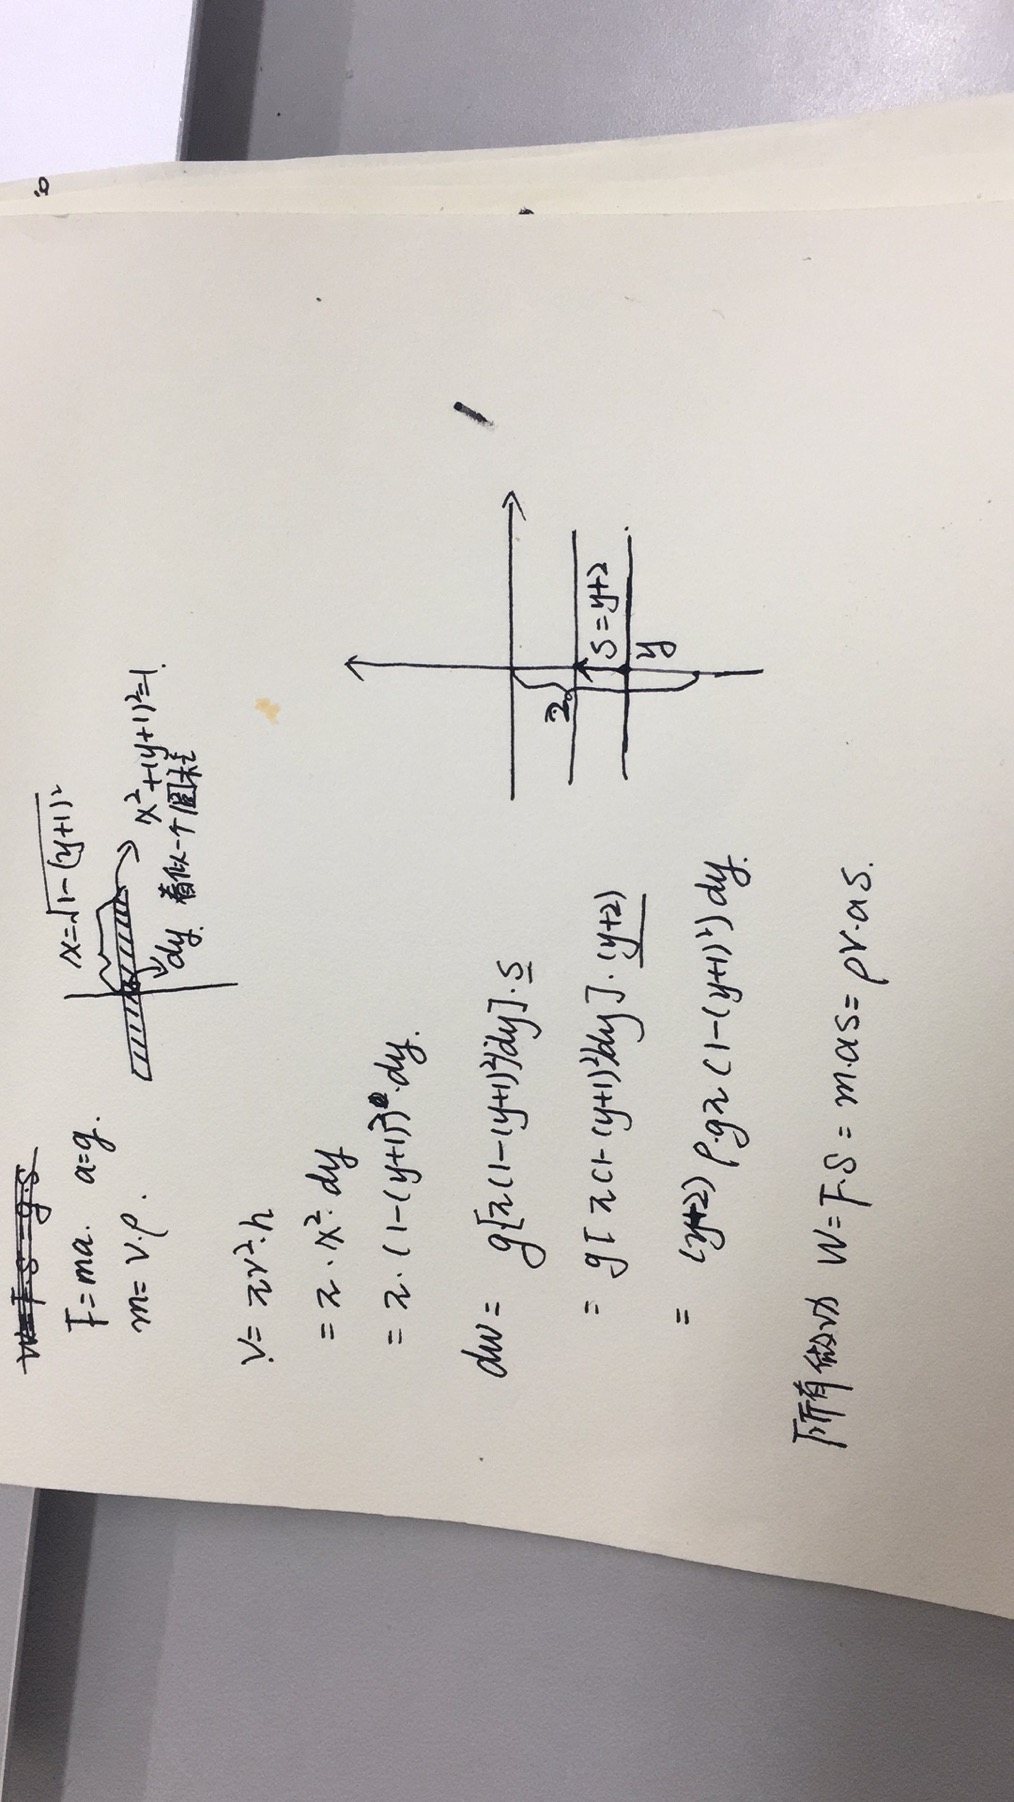 x=√1-(y+1)²
F=ma. a=g.
m=V·ρ.
x²+(y+1)²=1.
dy. 看似一个圆柱
V=πr²·h
=π·x²·dy
=π·(1-(y+1)²)·dy.
dw= g[π(1-(y+1)²)dy]·s
= g[π(1-(y+1)²)dy]·(y+2)
= (y+2)ρ·gπ(1-(y+1)²)dy.
2
S=y+2
y
所有做以 W=F·S=m·as=ρV·as.